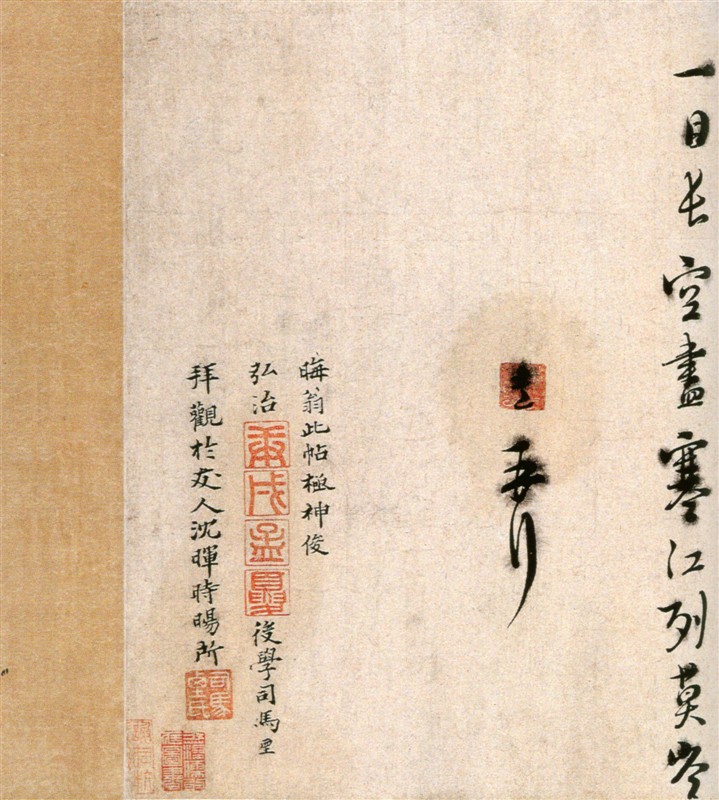 一日長空盡寒江列莫岑
晦翁此帖極神俊
弘治庚戌孟夏後學司馬垔
拜觀於友人沈暉時暘所
司馬垔氏